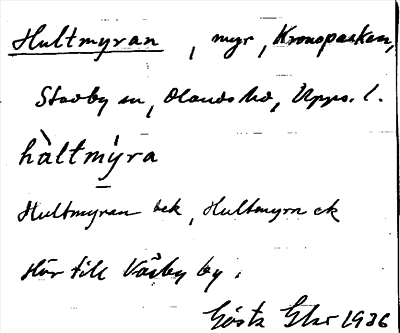 Hultmyran, myr, Kronoparken,
Stavby sn, Olands hd, Upps. l.
hàltmýra
Hultmyran bek, Hultmyrn ek
Hör till Väsby by.
Gösta 1936